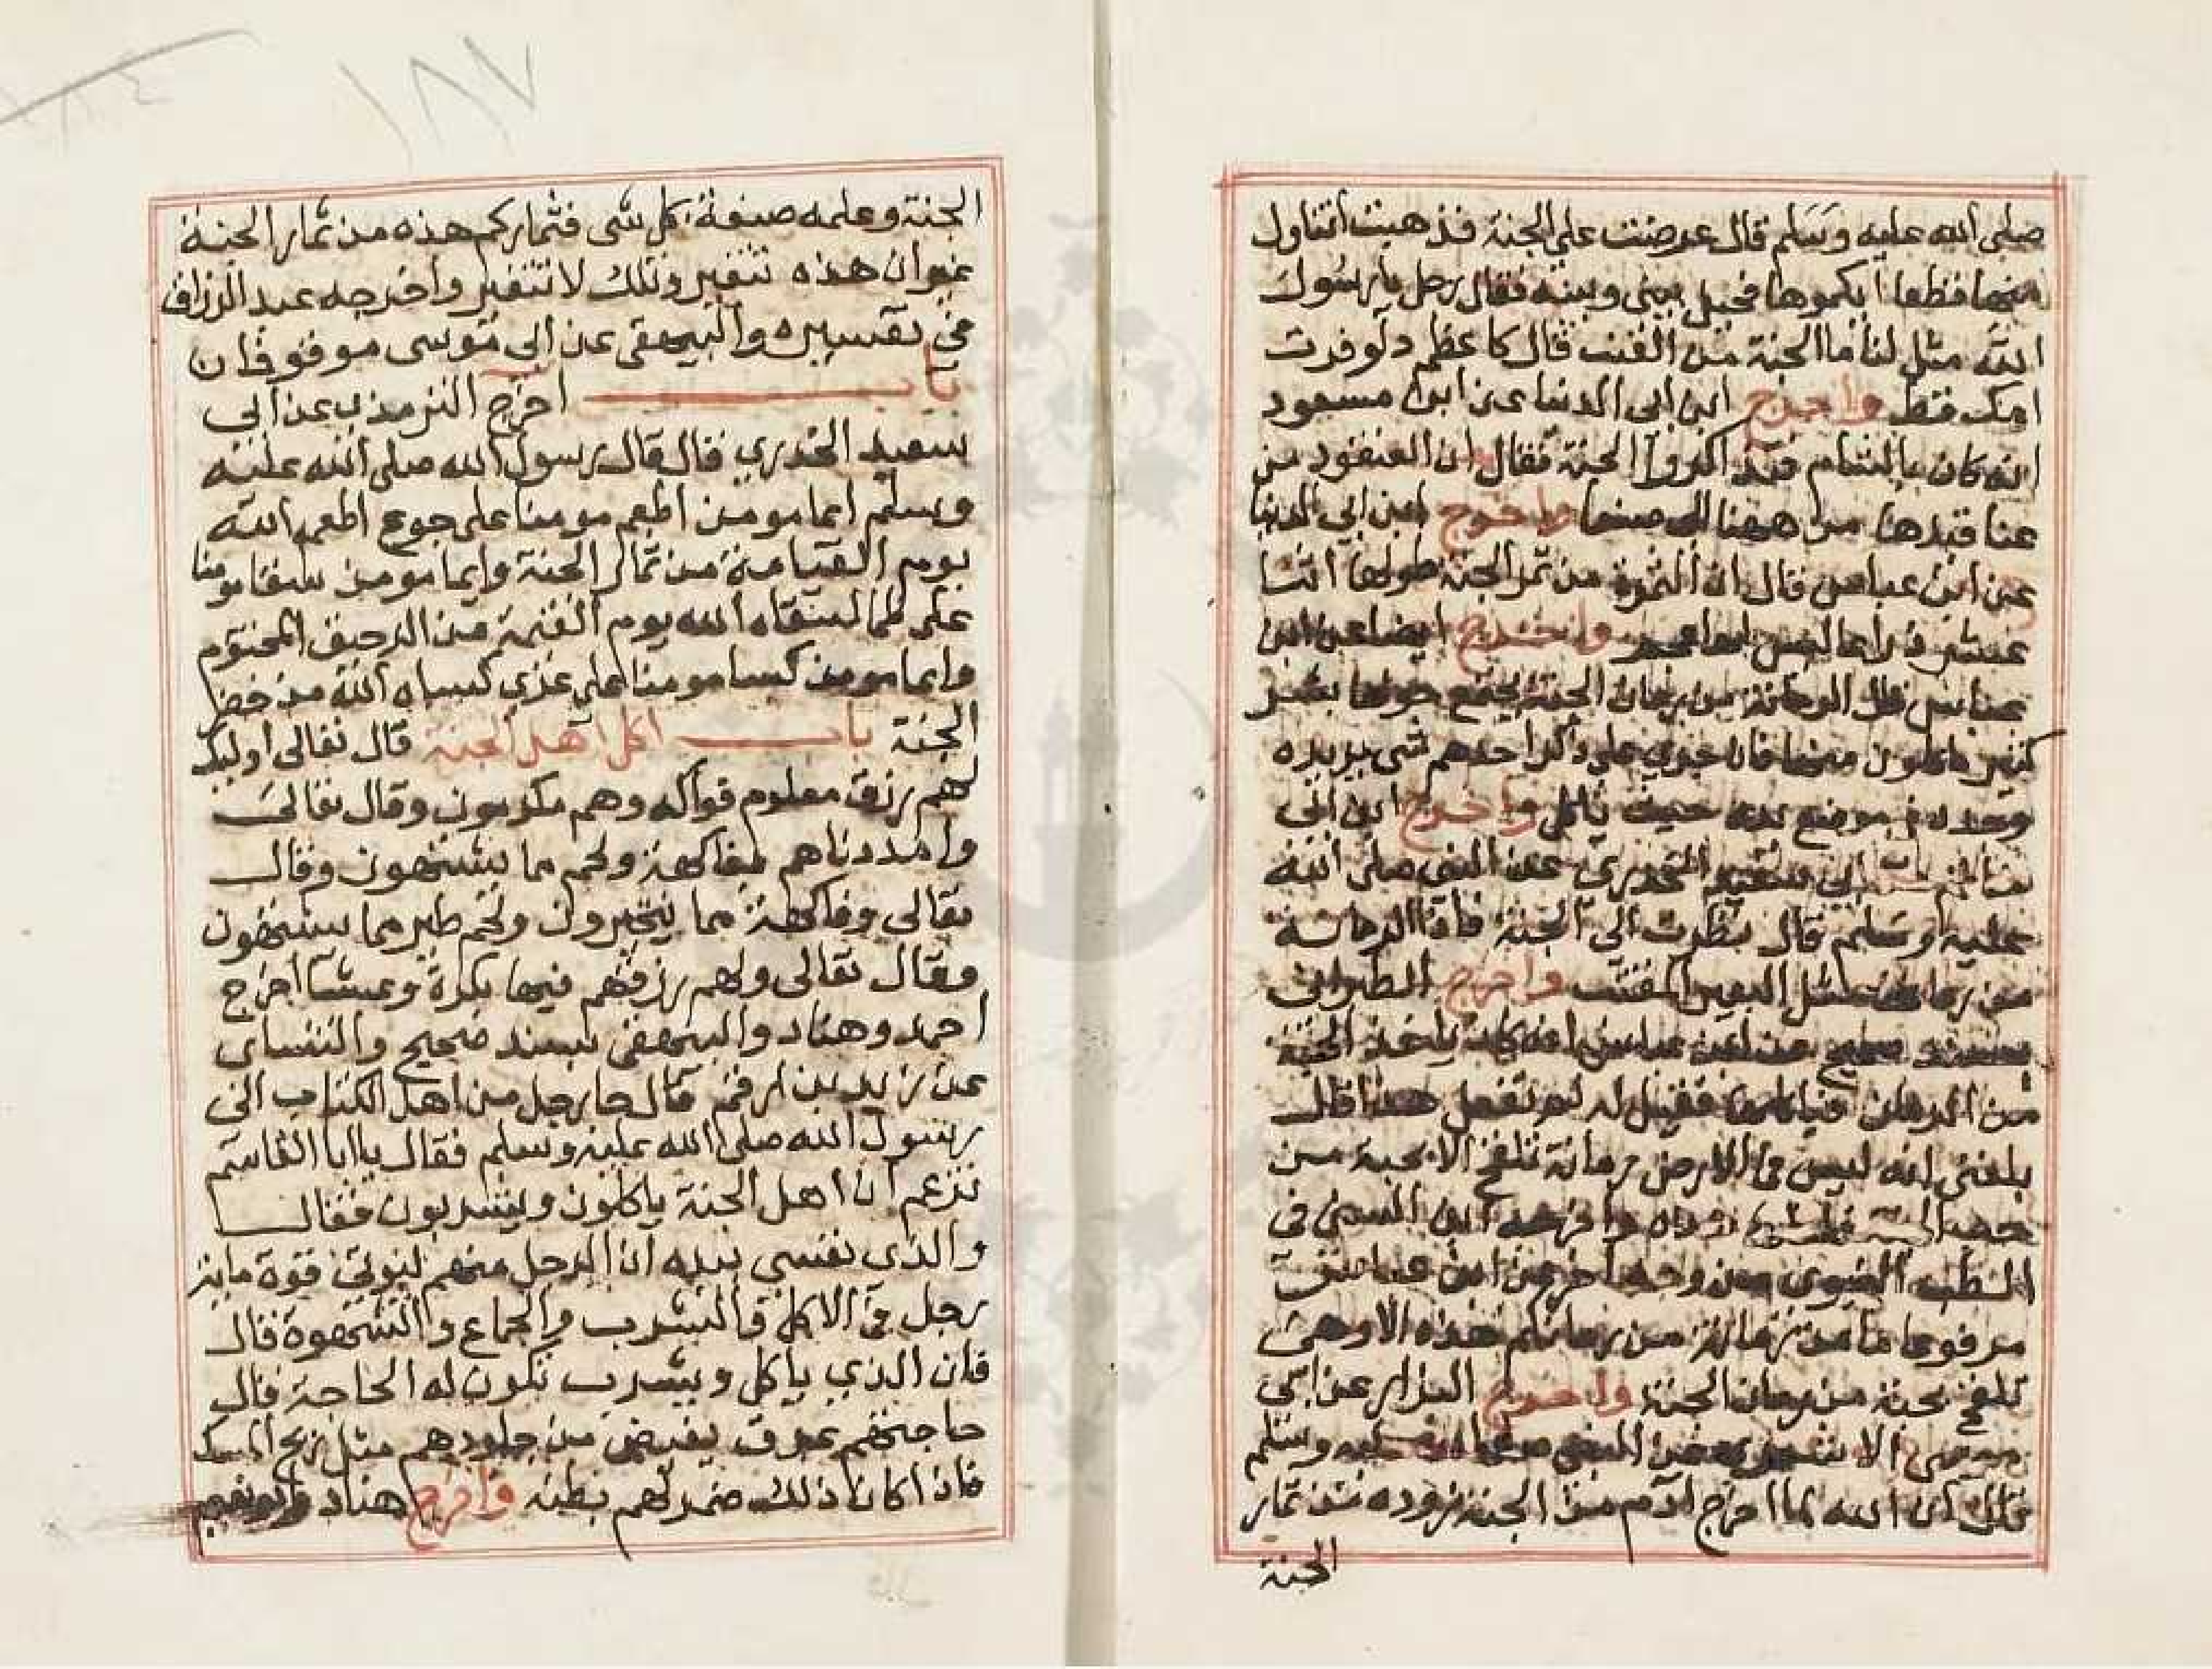 صلى الله عليه وسلم قال عرضت على الجنة فذهبت اتناول
منها قطفا ايكموها فحيل بينى وبينه فقال رجل يا رسول
الله مثل لنا ما الحبة من العنب قال كاعظم دلو فرت
امك قط واخرج ابن ابى الدنيا عن ابن مسعود
انه كان بالشام فتذاكروا الجنة فقال ان العنقود من
عناقيدها من ههنا الى صنعا واخرج ابن ابي الدنيا
عن ابن عباس قال ان الثمرة من ثمر الجنة طولها اثنا
عشر ذراعا ليس لها عجم واخرج ايضا عن ابن
عباس قال الرمانة من رمان الجنة يجتمع حولها بشر
كثير ياكلون منها فان جرى على ذكر احدهم شى يريده
وجده فى موضع يده حيث ياكل واخرج ابن ابى
ابي سعيد الخدرى عن النبى صلى الله
عليه وسلم قال نظرت الى الجنة فاذا الرمانة
من رمانها مثل البعير المقتب واخرج الطبرانى
بسند صحيح عن ابن عباس انه كان ياخذ الحبة
من الرمان فياكلها فقيل له لم تفعل هذا قال
بلغنى انه ليس فى الارض رمانة تلقح الا بحبة من
حب الجنة واخرجه ابن السنى فى
الطب النبوى من وجه اخر عن ابن عباس
مرفوعا ما من رمانة من رمانكم هذه الا وهى
تلقح بحبة من رمان الجنة واخرج البزار عن ابى
موسى الاشعرى عن النبى صلى الله عليه وسلم
قال ان الله لما اخرج ادم من الجنة زوده من ثمار
الجنة
١٨٧
الجنة وعلمه صنعة كل شى فثماركم هذه من ثمار الجنة
غير ان هذه تتغير وتلك لا تتغير واخرجه عبد الرزاق
فى تفسيره والبيهقى عن ابى موسى موقوفا ن
باب اخرج الترمذى عن ابى
سعيد الخدري قال قال رسول الله صلى الله عليه
وسلم ايما مومن اطعم مومنا على جوع اطعمه الله
يوم القيامة من ثمار الجنة وايما مومن سقا مومنا
على ظما سقاه الله يوم القيمة من الرحيق المختوم
وايما مومن كسا مومنا على عرى كساه الله من خضر
الجنة باب اكل اهل الجنة قال تعالى اوليك
لهم رزق معلوم فواكه وهم مكرمون وقال تعالى
وامددناهم بفاكهة ولحم مما يشتهون وقال
تعالى وفاكهة مما يتخيرون ولحم طير مما يشتهون
وقال تعالى ولهم رزقهم فيها بكرة وعشيا اخرج
احمد وهناد والبيهقى بسند صحيح والنساى
عن زيد بن ارقم قال جا رجل من اهل الكتاب الى
رسول الله صلى الله عليه وسلم فقال يا ابا القاسم
تزعم ان اهل الجنة ياكلون ويشربون فقال
والذى نفسي بيده ان الرجل منهم ليوتى قوة ماية
رجل فى الاكل والشرب والجماع والشهوة قال
فان الذي ياكل ويشرب تكون له الحاجة قال
حاجتهم عرق يفيض من جلودهم مثل ريح المسك
فاذا كان ذلك ضمر لهم بطنه واخرج هناد وابو نعيم